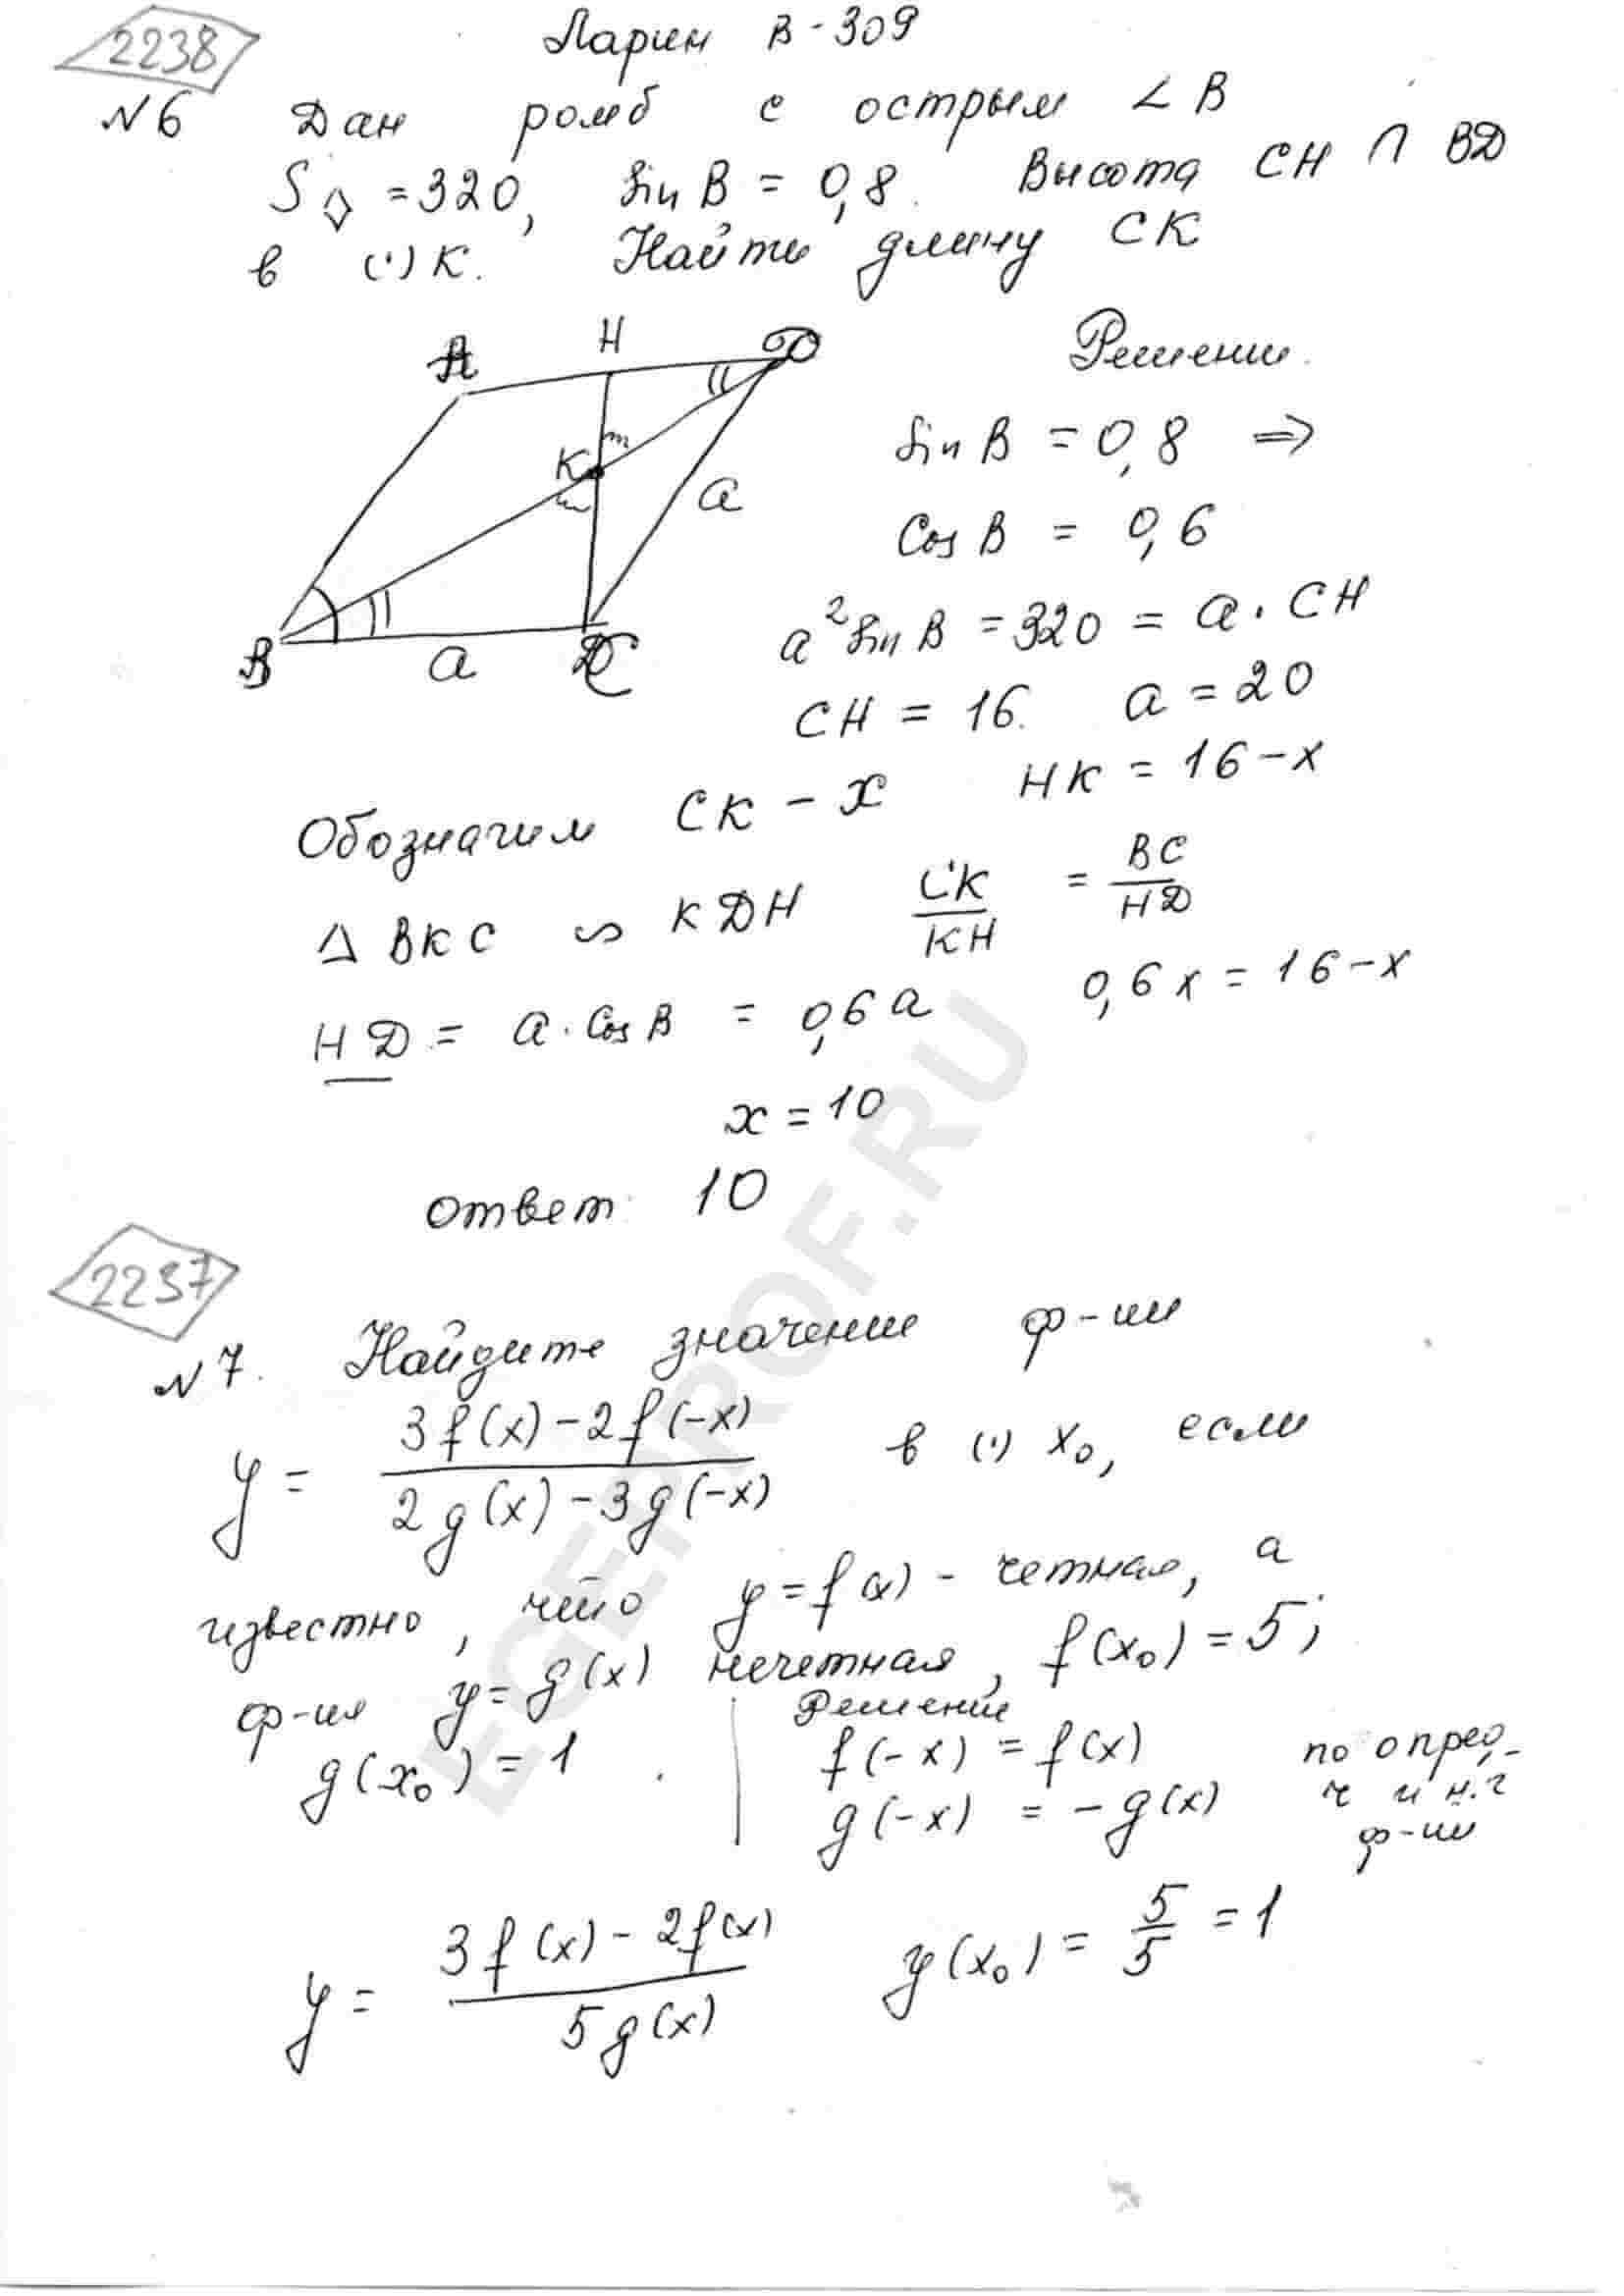 2238
Ларин В-309
№6 Дан ромб с острым ∠B
S◇ = 320, Sin B = 0,8. Высота CH ∩ BD
в (·) K. Найти длину CK
A H D
K
a
B a C
Решение.
Sin B = 0,8 ⇒
Cos B = 0,6
a² Sin B = 320 = a · CH
CH = 16. a = 20
Обозначим CK - x HK = 16 - x
Δ BKC ∽ KDH CK/KH = BC/HD
HD = a · Cos B = 0,6 a 0,6 x = 16 - x
x = 10
Ответ: 10
2237
№7. Найдите значение ф-ии
y = (3f(x) - 2f(-x))/(2g(x) - 3g(-x)) в (·) x₀, если
известно, что y = f(x) - четная, а
ф-ия y = g(x) нечетная, f(x₀) = 5;
g(x₀) = 1.
Решение
f(-x) = f(x) по опред.
g(-x) = -g(x) ч и н.ч
ф-ии
y = (3f(x) - 2f(x))/(5g(x)) y(x₀) = 5/5 = 1
EGEPROF.RU